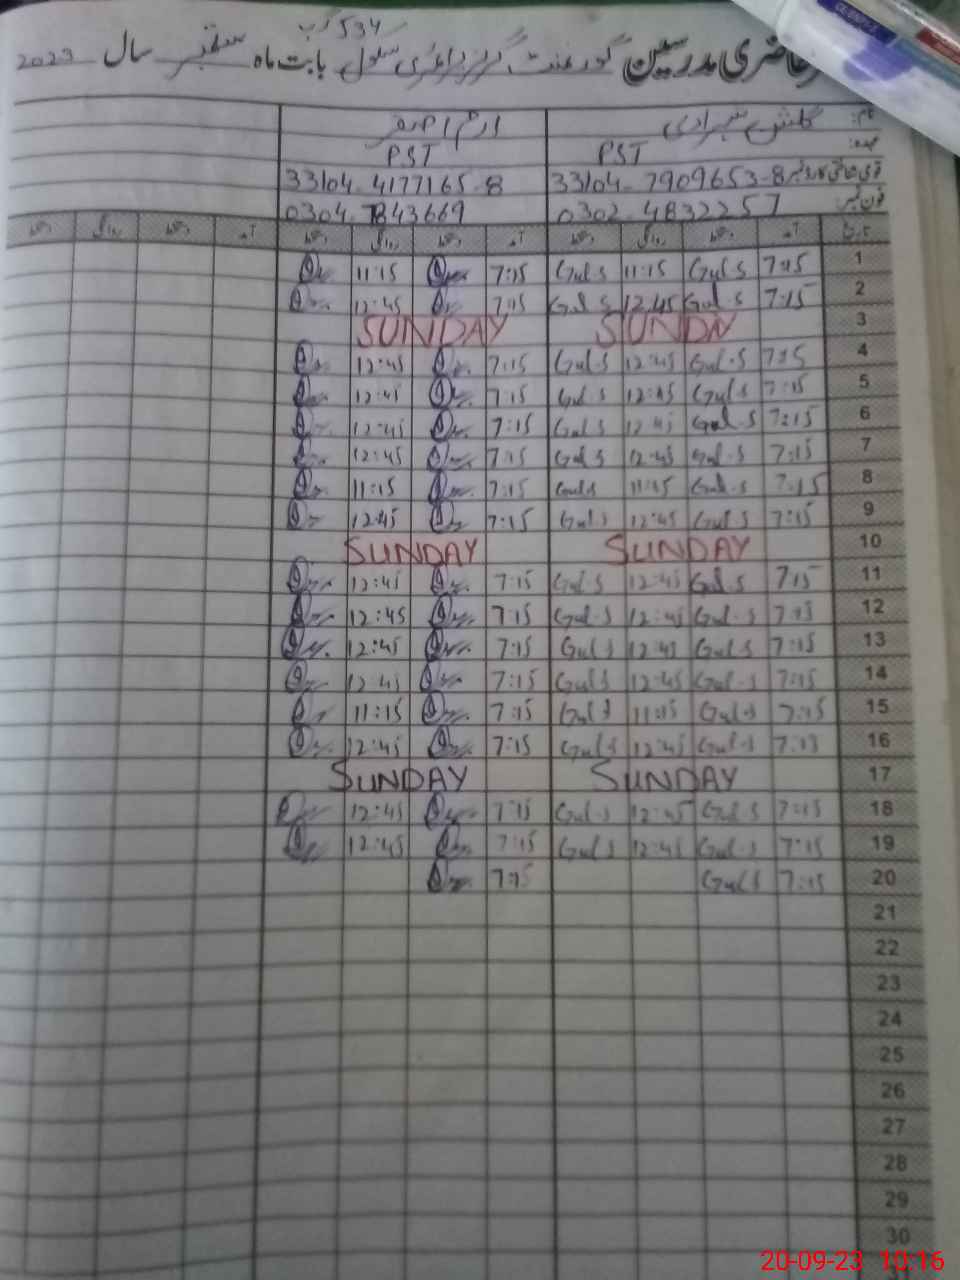 534 گ ب
حاضری مدرسین گورنمنٹ گرلز پرائمری سکول بابت ماہ ستمبر سال 2023
نام: گلشن شہزادی ارم
عہدہ: PST PST
قومی شناختی کارڈ نمبر 33104-7909653-8 33104-4177165-8
فون نمبر: 0302-4832257 0304-7843669
تاریخ آمد دستخط روانگی دستخط آمد دستخط روانگی دستخط آمد دستخط روانگی دستخط
1 7:15 Gul.S 11:15 Gul.S 7:15 11:15
2 7:15 Gul.S 12:45 Gul S 7:15 12:45
3 SUNDAY SUNDAY
4 7:15 Gul.S 12:45 Gul.S 7:15 12:45
5 7:15 Gul S 12:45 Gul S 7:15 12:45
6 7:15 Gul.S 12:45 Gul S 7:15 12:45
7 7:15 Gul.S 12:45 Gul S 7:15 12:45
8 7:15 Gul.S 11:15 Gul S 7:15 11:15
9 7:15 Gul S 12:45 Gul S 7:15 12:45
10 SUNDAY SUNDAY
11 7:15 Gul S 12:45 Gul S 7:15 12:45
12 7:15 Gul.S 12:45 Gul.S 7:15 12:45
13 7:15 Gul.S 12:45 Gul S 7:15 12:45
14 7:15 Gul.S 12:45 Gul S 7:15 12:45
15 7:15 Gul S 11:15 Gul S 7:15 11:15
16 7:15 Gul.S 12:45 Gul S 7:15 12:45
17 SUNDAY SUNDAY
18 7:15 Gul S 12:45 Gul.S 7:15 12:45
19 7:15 Gul.S 12:45 Gul S 7:15 12:45
20 7:15 Gul S 7:15
21
22
23
24
25
26
27
28
29
30
20-09-23 10:16